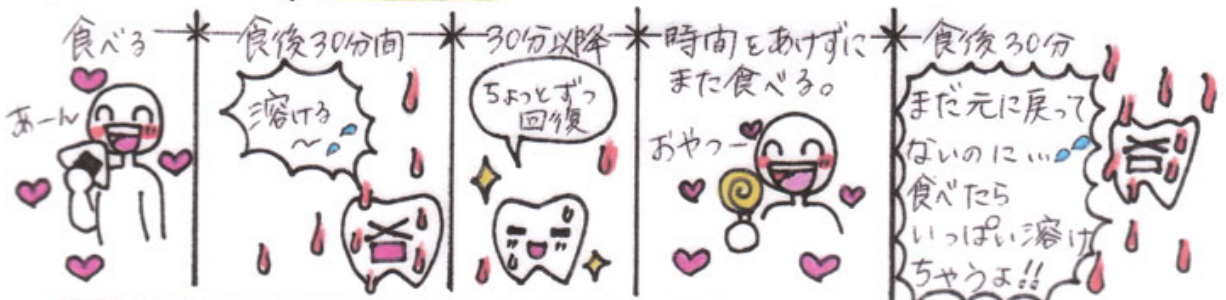 食べる
あーん
食後30分間
溶ける
～
30分以降
ちょっとずつ
回復
時間をあけずに
また食べる。
おやつー
食後30分
まだ元に戻って
ないのに…
食べたら
いっぱい溶け
ちゃうよ!!